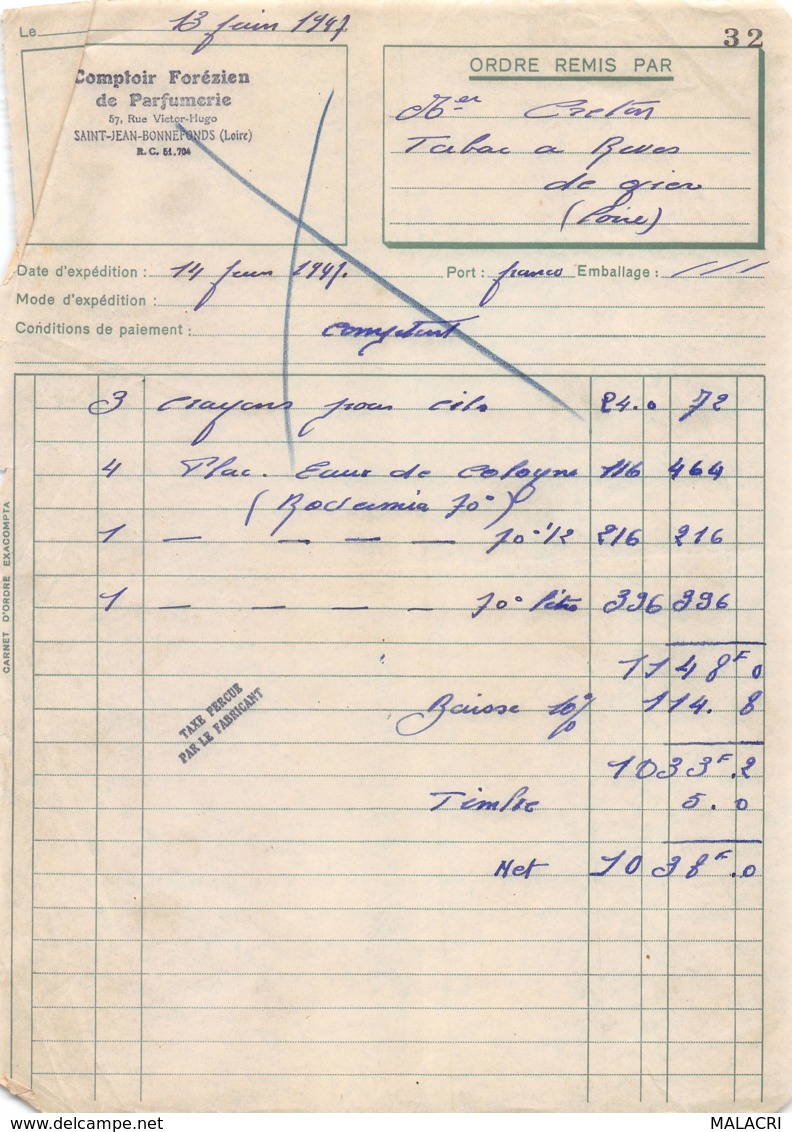 Le 13 juin 1947
32
Comptoir Forézien
de Parfumerie
57, Rue Victor-Hugo
SAINT-JEAN-BONNEFONDS (Loire)
R. C. 51.704
ORDRE REMIS PAR
Creton
Tabac a Rives
de gier
(Loire)
Date d'expédition : 14 juin 1947. Port : franco Emballage : / / /
Mode d'expédition :
Conditions de paiement : comptant
3 crayons pour cils 24.0 72
4 Flac. Eaux de Cologne 116 464
( 70°)
1 — — — — 70° 1/2 216 216
1 — — — — 70° litre 396 396
1148F 0
Baisse 10% 114.8
1033F.2
Timbre 5.0
Net 1038F.0
TAXE PERCUE
PAR LE FABRICANT
CARNET D'ORDRE EXACOMPTA
MALACRI